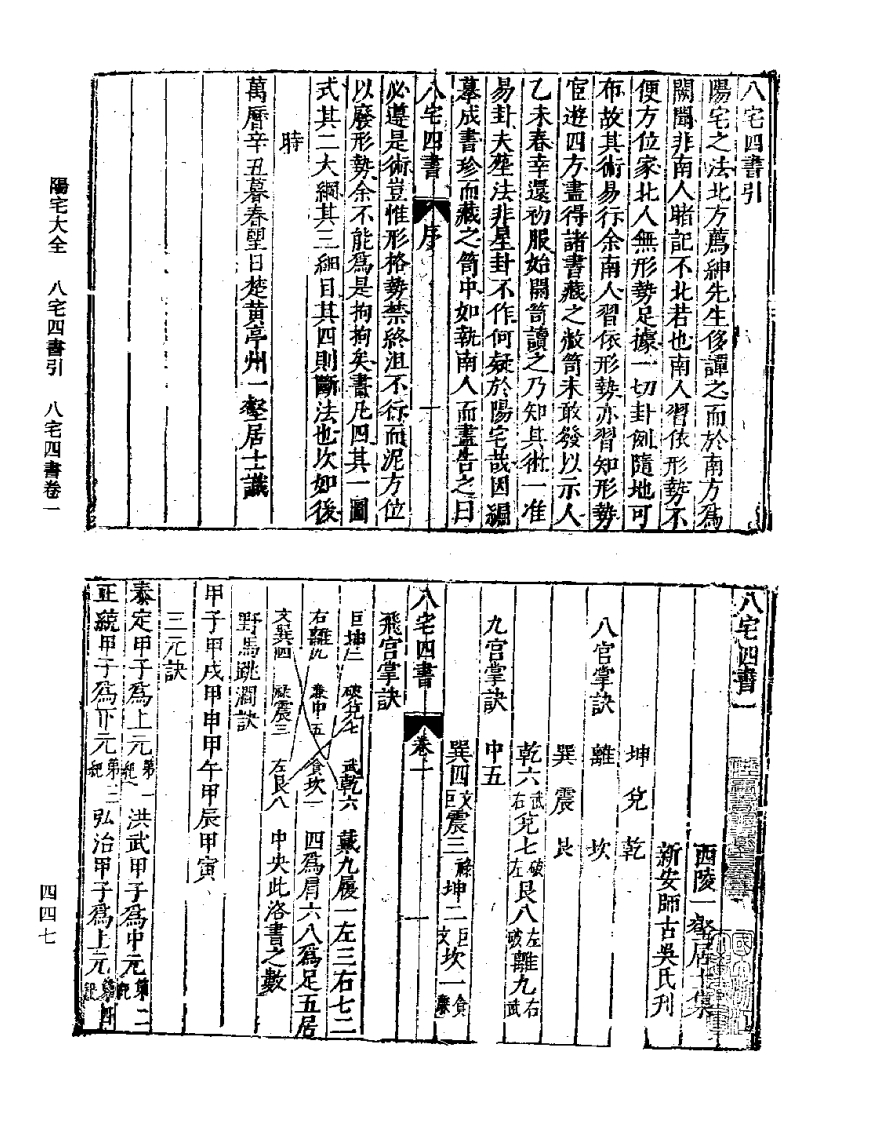 八宅四書引
陽宅之法北方薦紳先生侈譚之而於南方爲
闕聞非南人睹記不北若也南人習依形勢不
便方位家北人無形勢足據一切卦例隨地可
布故其術易行余南人習依形勢亦習知形勢
宦遊四方盡得諸書藏之敝笥未敢發以示人
乙未春幸還初服始開笥讀之乃知其術一准
易卦夫塋法非星卦不作何疑於陽宅哉因編
摹成書珍而藏之笥中如執南人而盡告之曰
八宅四書 序 一
必遵是術豈惟形格勢禁終沮不行而泥方位
以廢形勢余不能爲是拘拘矣書凡四其一圖
式其二大綱其三細目其四則斷法也次如後
時
萬曆辛丑暮春望日楚黄亭州一壑居士識
陽宅大全 八宅四書引 八宅四書卷一
八宅四書一
西陵一壑居士集
新安師古吳氏刊
坤兌乾
八宫掌訣 離 坎
巽震艮
乾六武右兌七破左艮八左破離九右武
九宫掌訣 中五
巽四文巨震三祿坤二巨文坎一貪
八宅四書 卷一 一
飛宫掌訣
巨坤二 破兌七 武乾六 戴九履一左三右七二
右離九 廉中五 貪坎一 四爲肩六八爲足五居
文巽四 祿震三 左艮八 中央此洛書之數
野馬跳澗訣
甲子甲戌甲申甲午甲辰甲寅
三元訣
泰定甲子爲上元第一紀 洪武甲子爲中元第二紀
正統甲子爲下元第三紀 弘治甲子爲上元第四紀
四四七